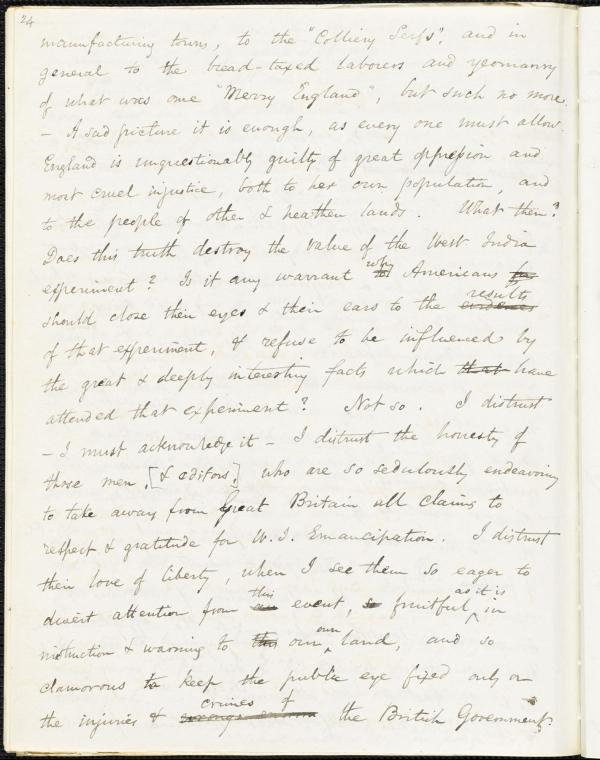 24
manufacturing towns, to the "Colliery Serfs", and in
general to the bread-taxed laborers and yeomanry
of what was once "Merry England", but such no more.
— A sad picture it is enough, as every one must allow.
England is unquestionably guilty of great oppression and
most cruel injustice, both to her own population, and
to the people of other & heathen lands. What then?
Does this truth destroy the value of the West India
experiment? Is it any warrant why Americans
should close their eyes & their ears to the evidences results
of that experiment, & refuse to be influenced by
the great & deeply interesting facts which that have
attended that experiment? Not so. I distrust
— I must acknowledge it — I distrust the honesty of
those men, [& editors,] who are so sedulously endeavoring
to take away from Great Britain all claim to
respect & gratitude for W. I. Emancipation. I distrust
their love of liberty, when I see them so eager to
divert attention from this event, so fruitful as it is in
instruction & warning to this our own land, and so
clamorous to keep the public eye fixed only on
the injuries & crimes of the British Government.